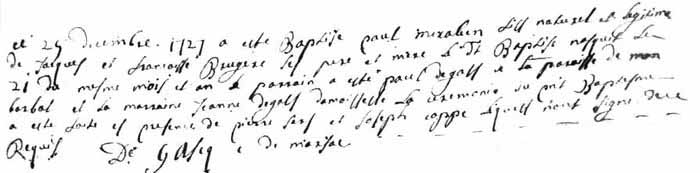 ce 25 decembre 1727 a esté Baptisé paul miraben fils naturel et legitime
de Jacques et francoise Brugere ses pere et mere le dt Baptisé nasquit le
21 du mesme mois et an le parrain a esté paul degals de la paroisse de mon
barbat et la marraine Jeanne degals damoiselle la ceremonie du pnt Baptesme
a esté faite en presence de pierre sers et Joseph coppe lequels nont signé de ce
Requis De